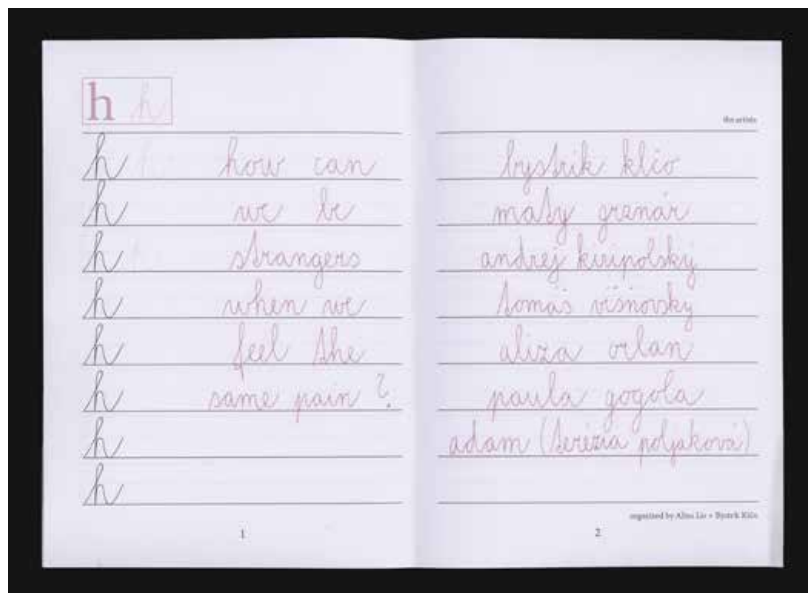 h h
h how can
h we be
h strangers
h when we
h feel the
h same pain ?
h
h
1
the artists
bystrik klčo
maty grznár
andrej kvipolský
tomáš višňovský
aliza orlan
paula gogola
adam (terézia poljaková)
organized by + Bystrik Klčo
2